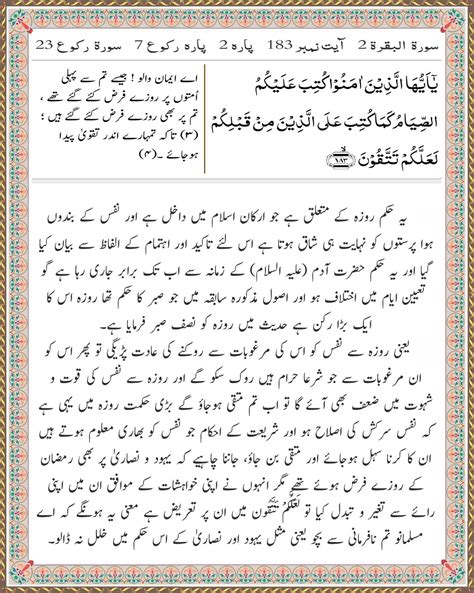 سورۃ البقرۃ 2 آیت نمبر 183 پارہ 2 پارہ رکوع 7 سورۃ رکوع 23
يٰۤاَيُّهَا الَّذِيْنَ اٰمَنُوْا كُتِبَ عَلَيْكُمُ
الصِّيَامُ كَمَا كُتِبَ عَلَى الَّذِيْنَ مِنْ قَبْلِكُمْ
لَعَلَّكُمْ تَتَّقُوْنَ ۙ﴿۱۸۳﴾
اے ایمان والو ! جیسے تم سے پہلی
اُمتوں پر روزے فرض کئے گئے تھے ،
تم پر بھی روزے فرض کئے گئے ہیں ؛
(۳) تاکہ تمہارے اندر تقویٰ پیدا
ہو جائے ۔ (۴)
یہ حکم روزہ کے متعلق ہے جو ارکان اسلام میں داخل ہے اور نفس کے بندوں
ہوا پرستوں کو نہایت ہی شاق ہوتا ہے اس لئے تاکید اور اہتمام کے الفاظ سے بیان کیا
گیا اور یہ حکم حضرت آدم (علیہ السلام) کے زمانہ سے اب تک برابر جاری رہا ہے گو
تعیین ایام میں اختلاف ہو اور اصول مذکورہ سابقہ میں جو صبر کا حکم تھا روزہ اس کا
ایک بڑا رکن ہے حدیث میں روزہ کو نصف صبر فرمایا ہے۔
یعنی روزہ سے نفس کو اس کی مرغوبات سے روکنے کی عادت پڑیگی تو پھر اس کو
ان مرغوبات سے جو شرعا حرام ہیں روک سکو گے اور روزہ سے نفس کی قوت و
شہوت میں ضعف بھی آئے گا تو اب تم متقی ہوجاؤ گے بڑی حکمت روزہ میں یہی ہے
کہ نفس سرکش کی اصلاح ہو اور شریعت کے احکام جو نفس کو بھاری معلوم ہوتے ہیں
ان کا کرنا سہل ہوجائے اور متقی بن جاؤ، جاننا چاہیے کہ یہود و نصاریٰ پر بھی رمضان
کے روزے فرض ہوئے تھے مگر انہوں نے اپنی خواہشات کے موافق ان میں اپنی
رائے سے تغیر و تبدل کیا تو لَعَلَّكُمْ تَتَّقُوْنَ میں ان پر تعریض ہے معنی یہ ہونگے کہ اے
مسلمانو تم نافرمانی سے بچو یعنی مثل یہود اور نصاریٰ کے اس حکم میں خلل نہ ڈالو۔